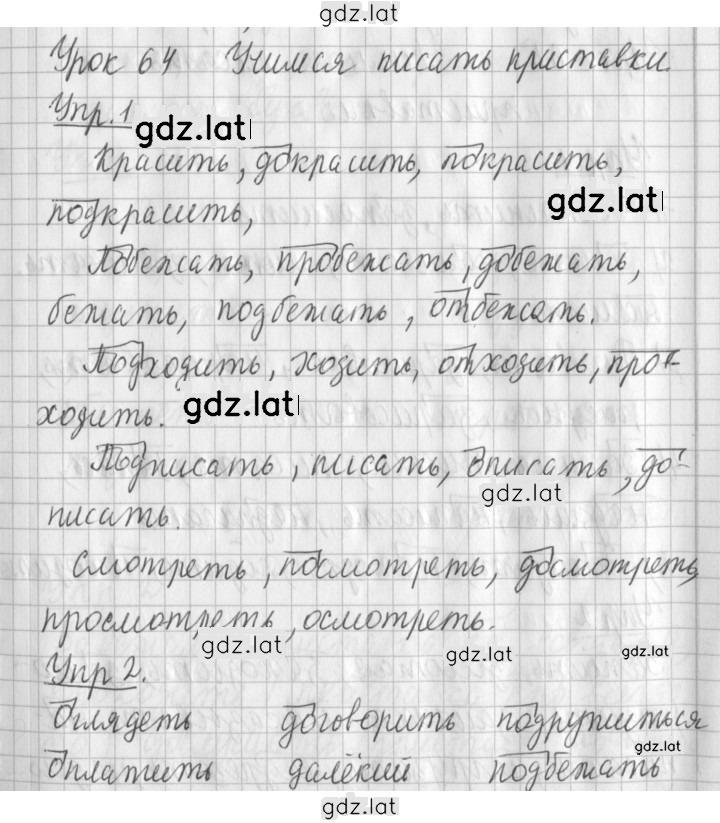 gdz.lat
Урок 64 Учимся писать приставки.
Упр. 1
gdz.lat
Красить, докрасить, покрасить,
gdz.lat
подкрасить,
Побежать, пробежать, добежать,
бежать, подбежать, отбежать.
Подходить, ходить, отходить, про-
ходить.
gdz.lat
Подписать, писать, вписать, до-
gdz.lat
писать.
Смотреть, посмотреть, досмотреть,
просмотреть, осмотреть.
gdz.lat
gdz.lat
gdz.lat
Упр 2.
Оглядеть договорить подружиться
gdz.lat
Оплатить далёкий подбежать
gdz.lat